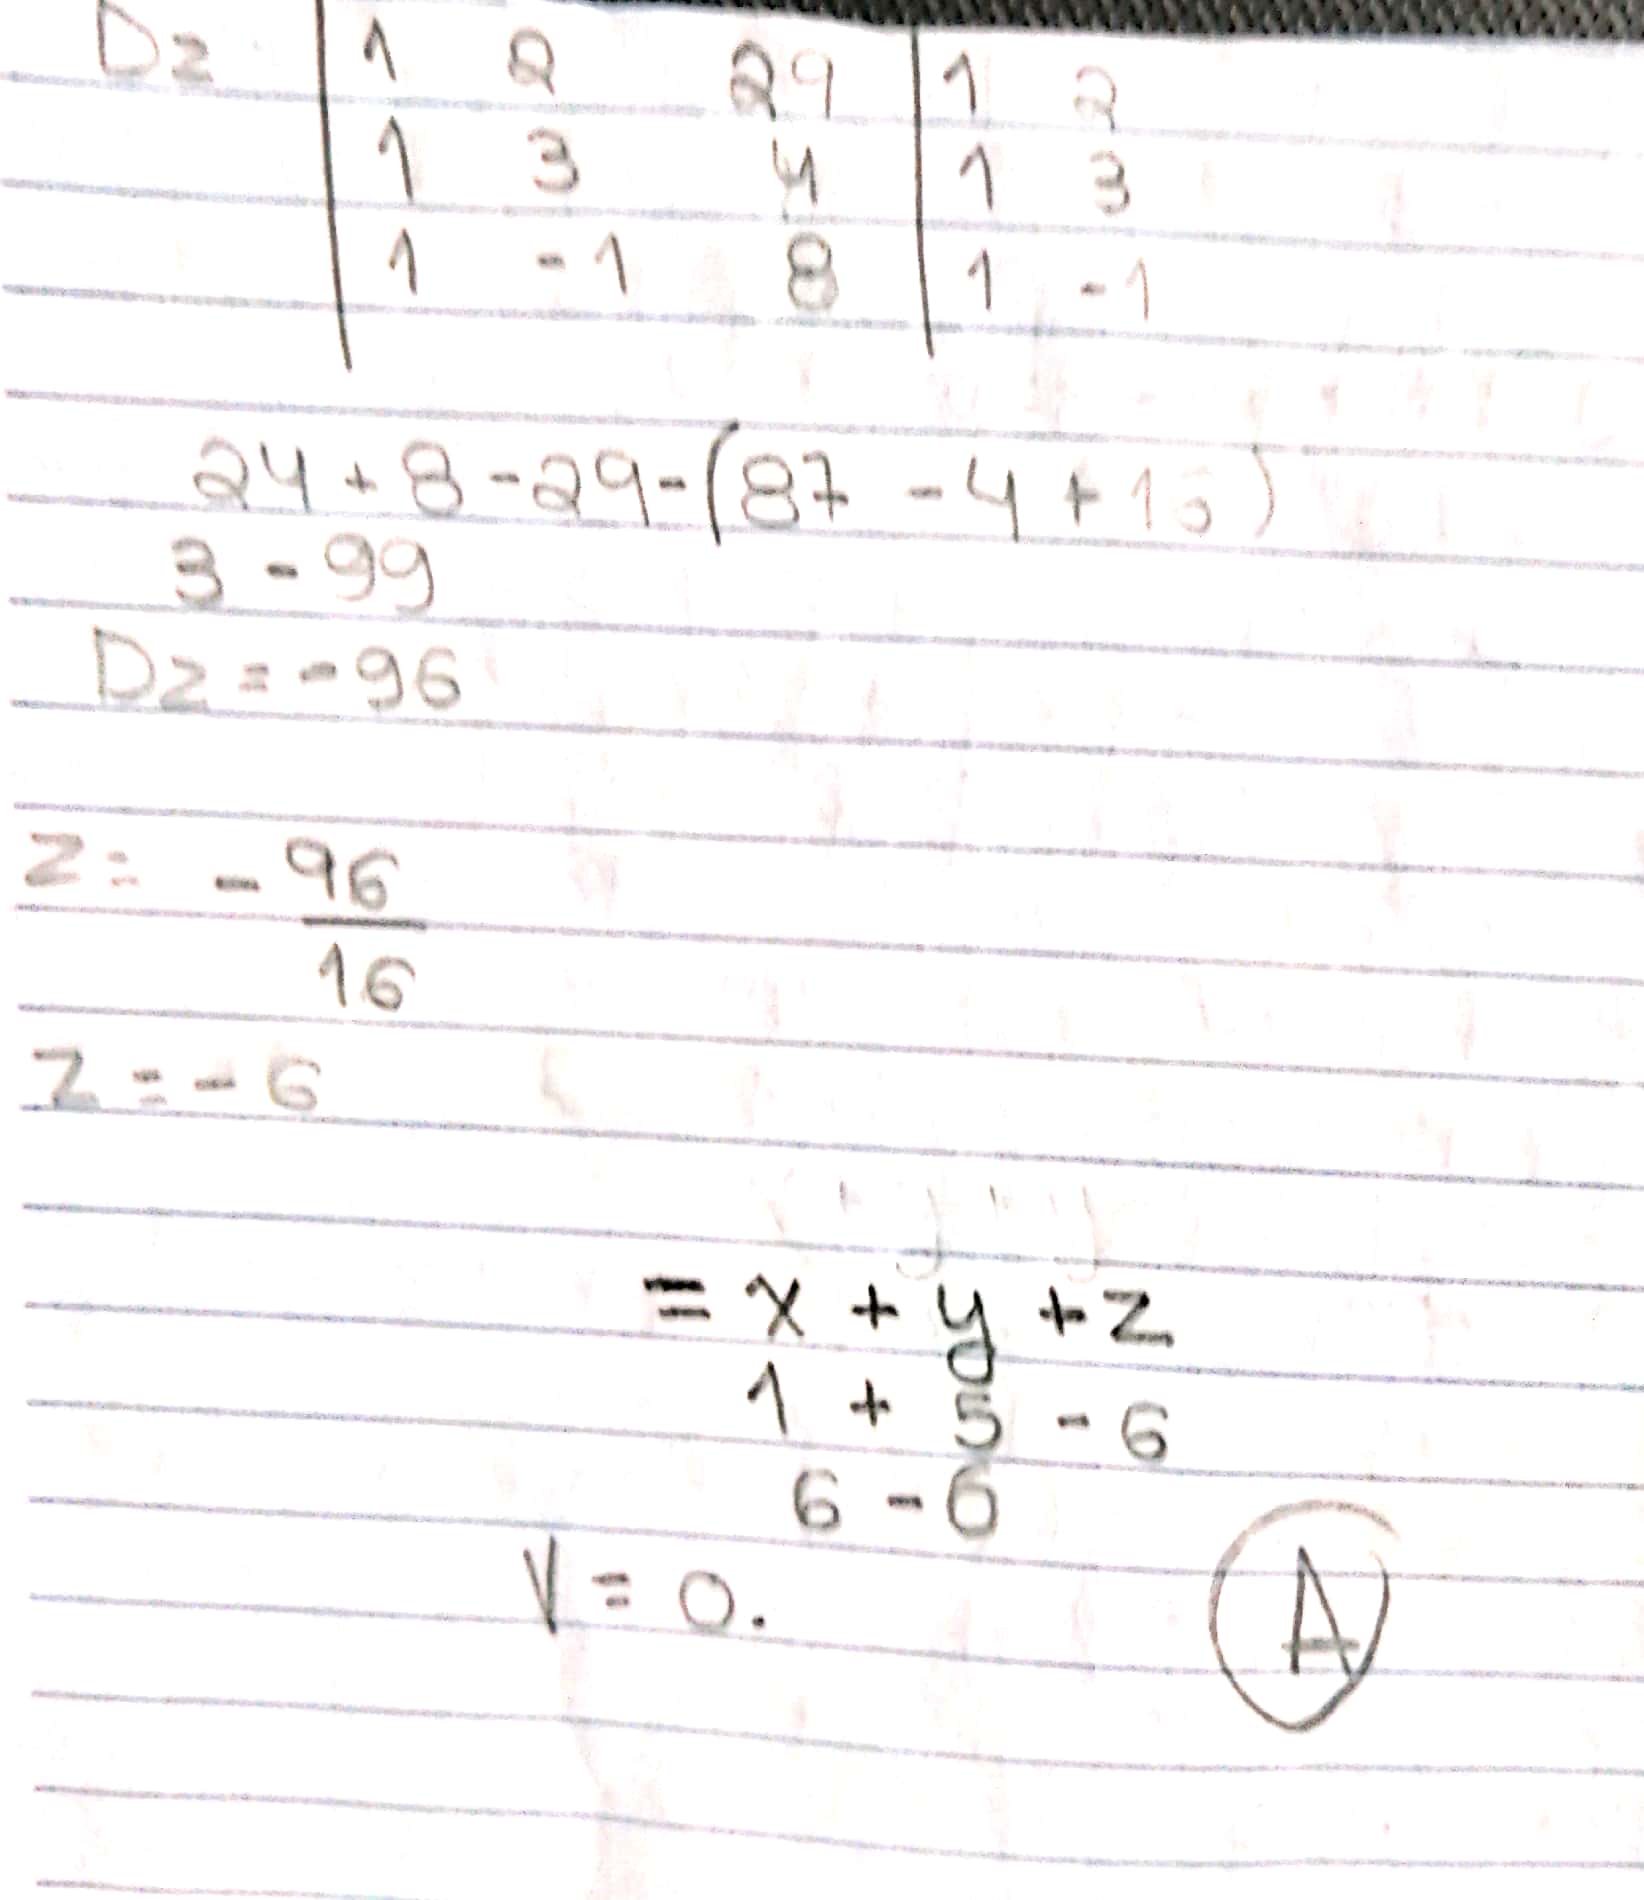 Dz | 1 2 29 | 1 2
1 3 4 | 1 3
1 -1 8 | 1 -1
24 + 8 - 29 - (87 - 4 + 16)
3 - 99
Dz = - 96
z = - 96
16
z = - 6
= x + y + z
1 + 5 - 6
6 - 6
V = 0.
A